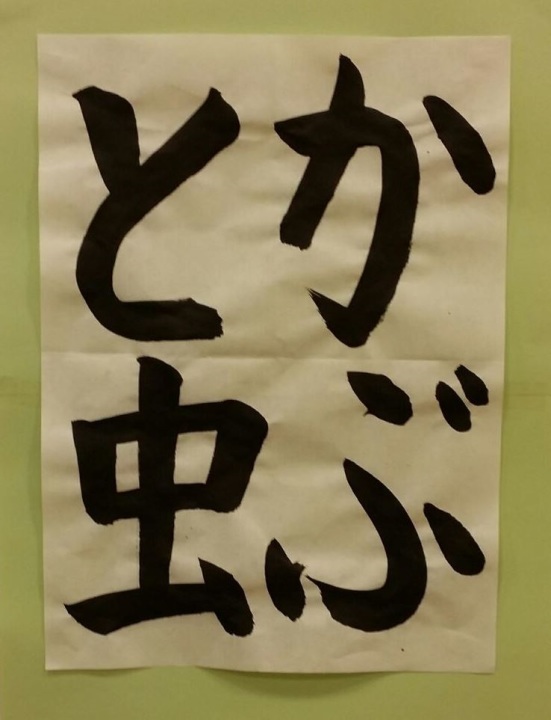 かぶ
と虫